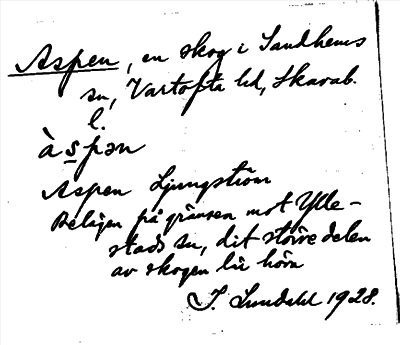 Aspen, en skog i Sandhems
sn, Vartofta hd, Skarab.
l.
àspən
Aspen Ljungström
Belägen på gränsen mot Ylle-
stads sn, dit större delen
av skogen lär höra
I. Lundahl 1928.